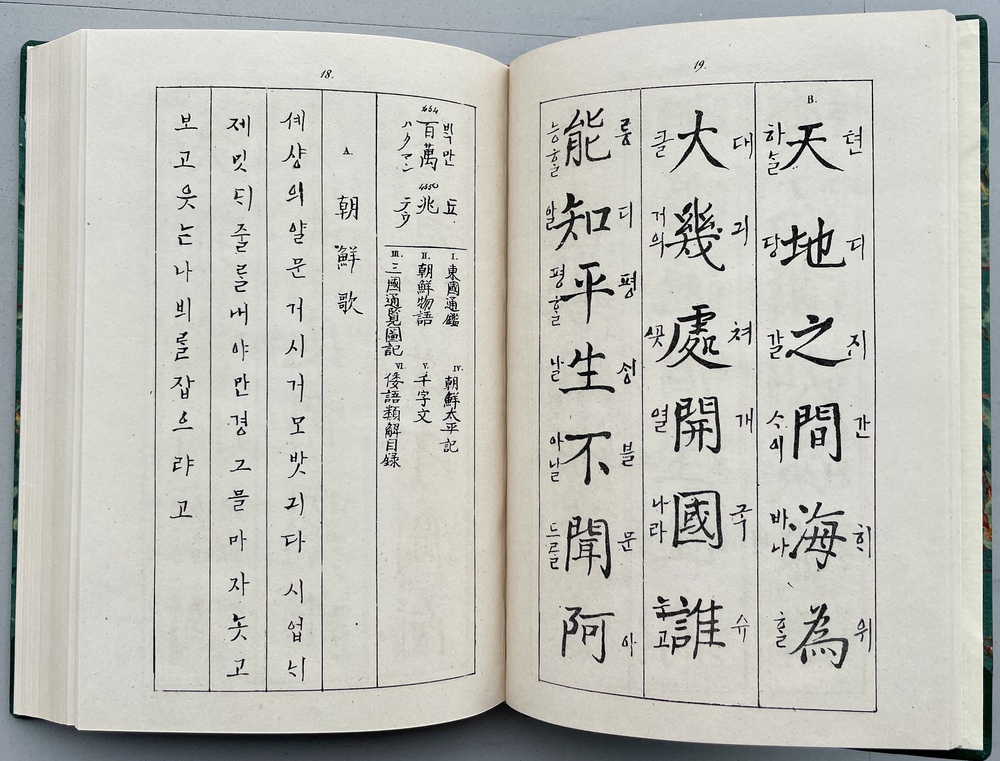 18.
빅만
百萬
ハクマン
됴
兆
テウ
I. 東國通鑑
II. 朝鮮物語
III. 三國通覽圖記
IV. 朝鮮太平記
V. 千字文
VI. 倭語類解目録
A. 朝鮮歌
셰샹의얄문거시거모밧긔다시업늬
제밋틔줄를내야만경그믈마자놋고
보고웃는나븨를잡으랴고
19.
B.
텬 디 지 간 희 위
天地之間海為
하늘 당 갈 수이 바나 흘
대 긔 쳐 개 국 슈
大幾處開國誰
클 거의 곳 열 나라 눗고
룽 디 평 싱 블 문 아
能知平生不聞阿
능흘 알 평흘 날 아닐 드르를